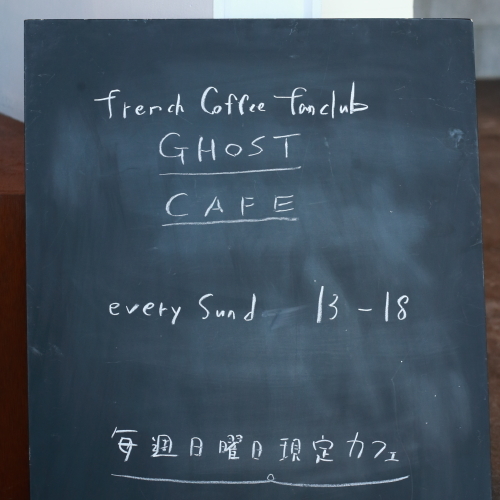 French Coffee fanclub
GHOST
CAFE
every Sund 13-18
毎週日曜日現定カフェ